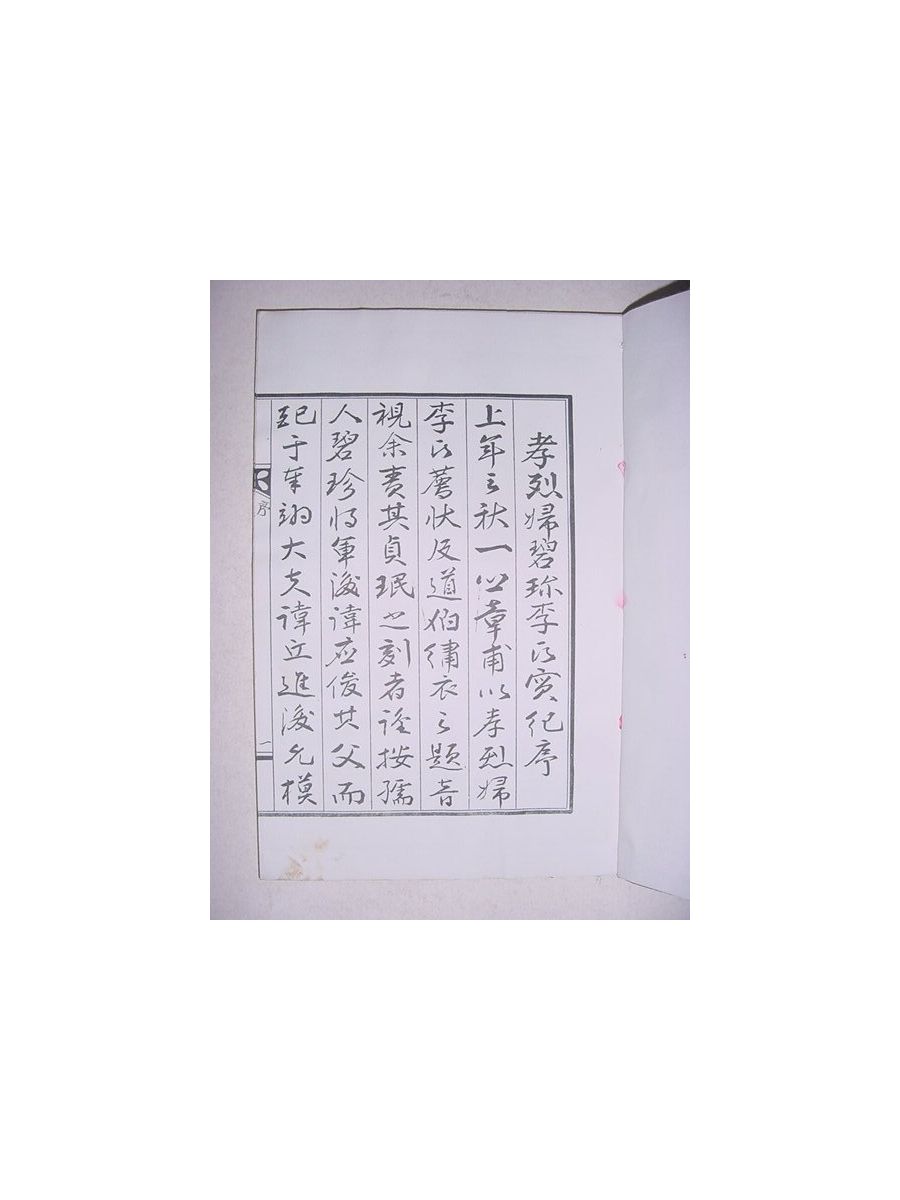 孝烈婦碧珍李氏實紀序
上年之秋一公章甫以孝烈婦
李氏薦狀及道伯繡衣之題音
視余責其貞珉之刻者謹按孺
人碧珍將軍後諱應俊其父而
于大夫諱丘進後允模
序
一